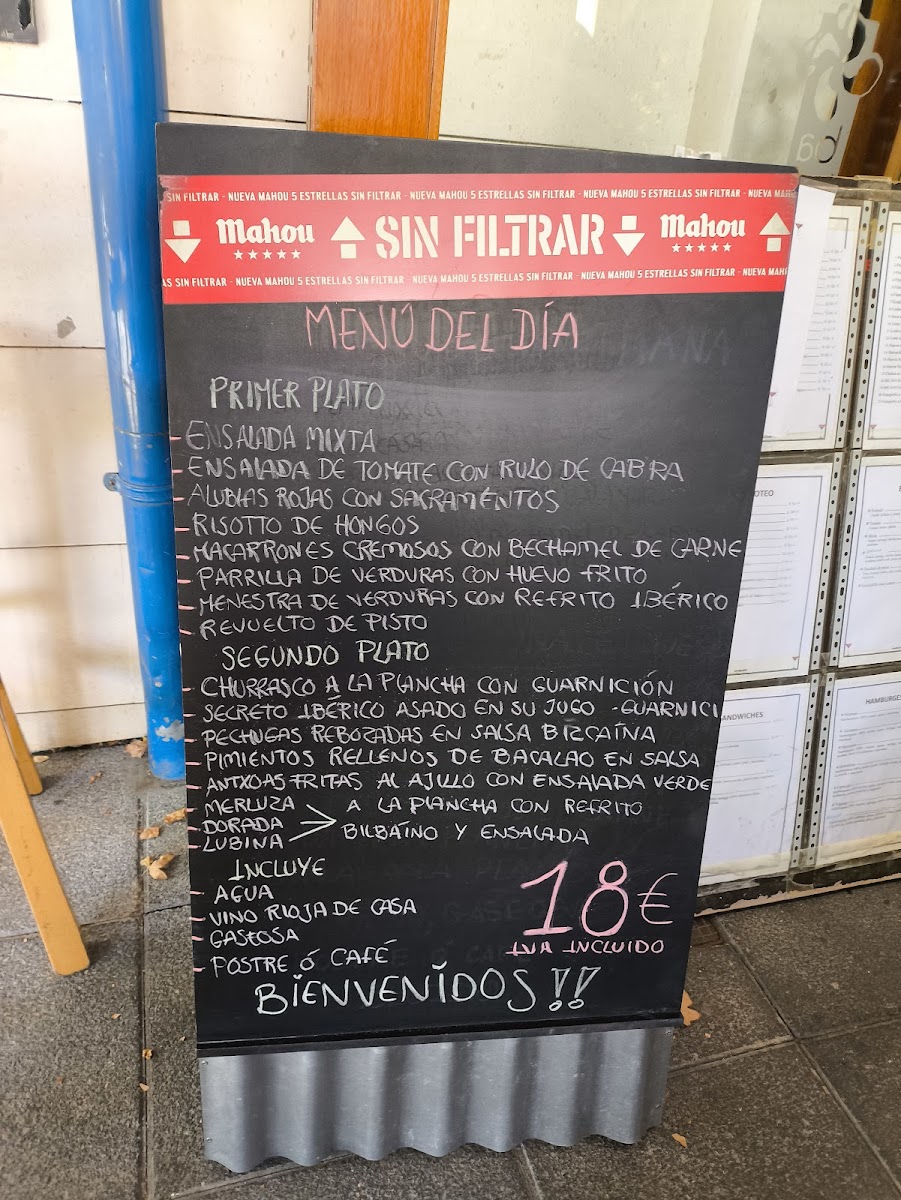 SIN FILTRAR - NUEVA MAHOU 5 ESTRELLAS SIN FILTRAR - NUEVA MAHOU 5 ESTRELLAS SIN FILTRAR - NUEVA MAHOU 5 ESTRELLAS SIN FILTRAR - NUEVA
Mahou SIN FILTRAR Mahou
AS SIN FILTRAR - NUEVA MAHOU 5 ESTRELLAS SIN FILTRAR - NUEVA MAHOU 5 ESTRELLAS SIN FILTRAR - NUEVA MAHOU 5 ESTRELLAS SIN FILTRAR - NUEVA MAH
MENÚ DEL DÍA
PRIMER PLATO
- ENSALADA MIXTA
- ENSALADA DE TOMATE CON RULO DE CABRA
- ALUBIAS ROJAS CON SACRAMENTOS
- RISOTTO DE HONGOS
- MACARRONES CREMOSOS CON BECHAMEL DE CARNE
- PARRILLA DE VERDURAS CON HUEVO FRITO
- MENESTRA DE VERDURAS CON REFRITO IBÉRICO
- REVUELTO DE PISTO
SEGUNDO PLATO
- CHURRASCO A LA PLANCHA CON GUARNICIÓN
- SECRETO IBÉRICO ASADO EN SU JUGO - GUARNICI
- PECHUGAS REBOZADAS EN SALSA BIZCAÍNA
- PIMIENTOS RELLENOS DE BACALAO EN SALSA
- ANTXOAS FRITAS AL AJILLO CON ENSALADA VERDE
- MERLUZA A LA PLANCHA CON REFRITO
- DORADA BILBAÍNO Y ENSALADA
- LUBINA
INCLUYE
- AGUA
- VINO RIOJA DE CASA
- GASEOSA
- POSTRE Ó CAFÉ
18€
IVA INCLUIDO
BIENVENIDOS!!
ANDWICHES
HAMBURGES